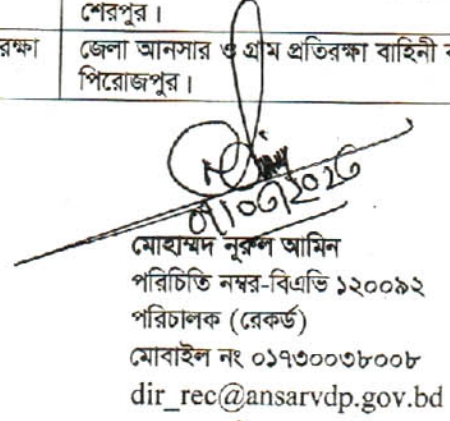 শেরপুর।
রক্ষা জেলা আনসার ও গ্রাম প্রতিরক্ষা বাহিনী
পিরোজপুর।
মোহাম্মদ নূরুল আমিন
পরিচিতি নম্বর-বিএভি ১২০০৯২
পরিচালক (রেকর্ড)
মোবাইল নং ০১৭৩০০৩৮০০৮
dir_rec@ansarvdp.gov.bd